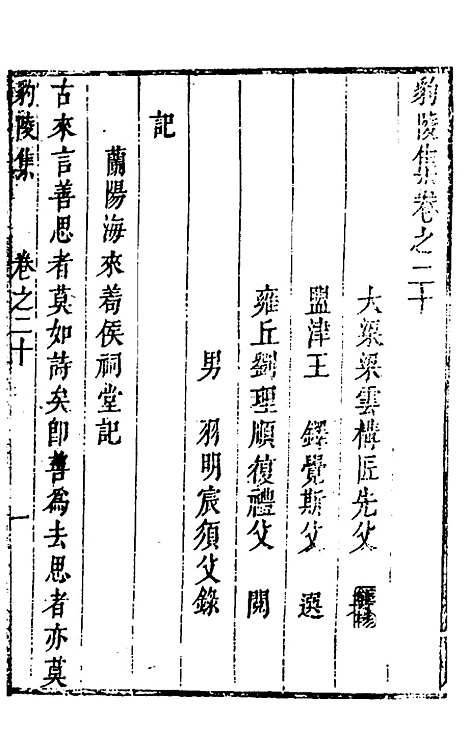 豹陵集卷之二十
大梁梁雲構匠先父
盟津王　鐸覺斯父　選
雍丘劉理順復禮父　閱
男　羽明宸須父錄
記
蘭陽海來葛侯祠堂記
古來言善思者莫如詩矣卽善為去思者亦莫
豹陵集　卷之二十　一